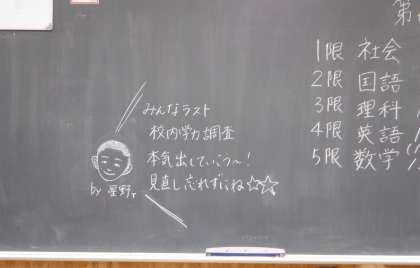 第
1限 社会
2限 国語
3限 理科
4限 英語
5限 数学
みんなラスト
校内学力調査
本気出していこう~!
見直し忘れずにね☆☆
by 星野T